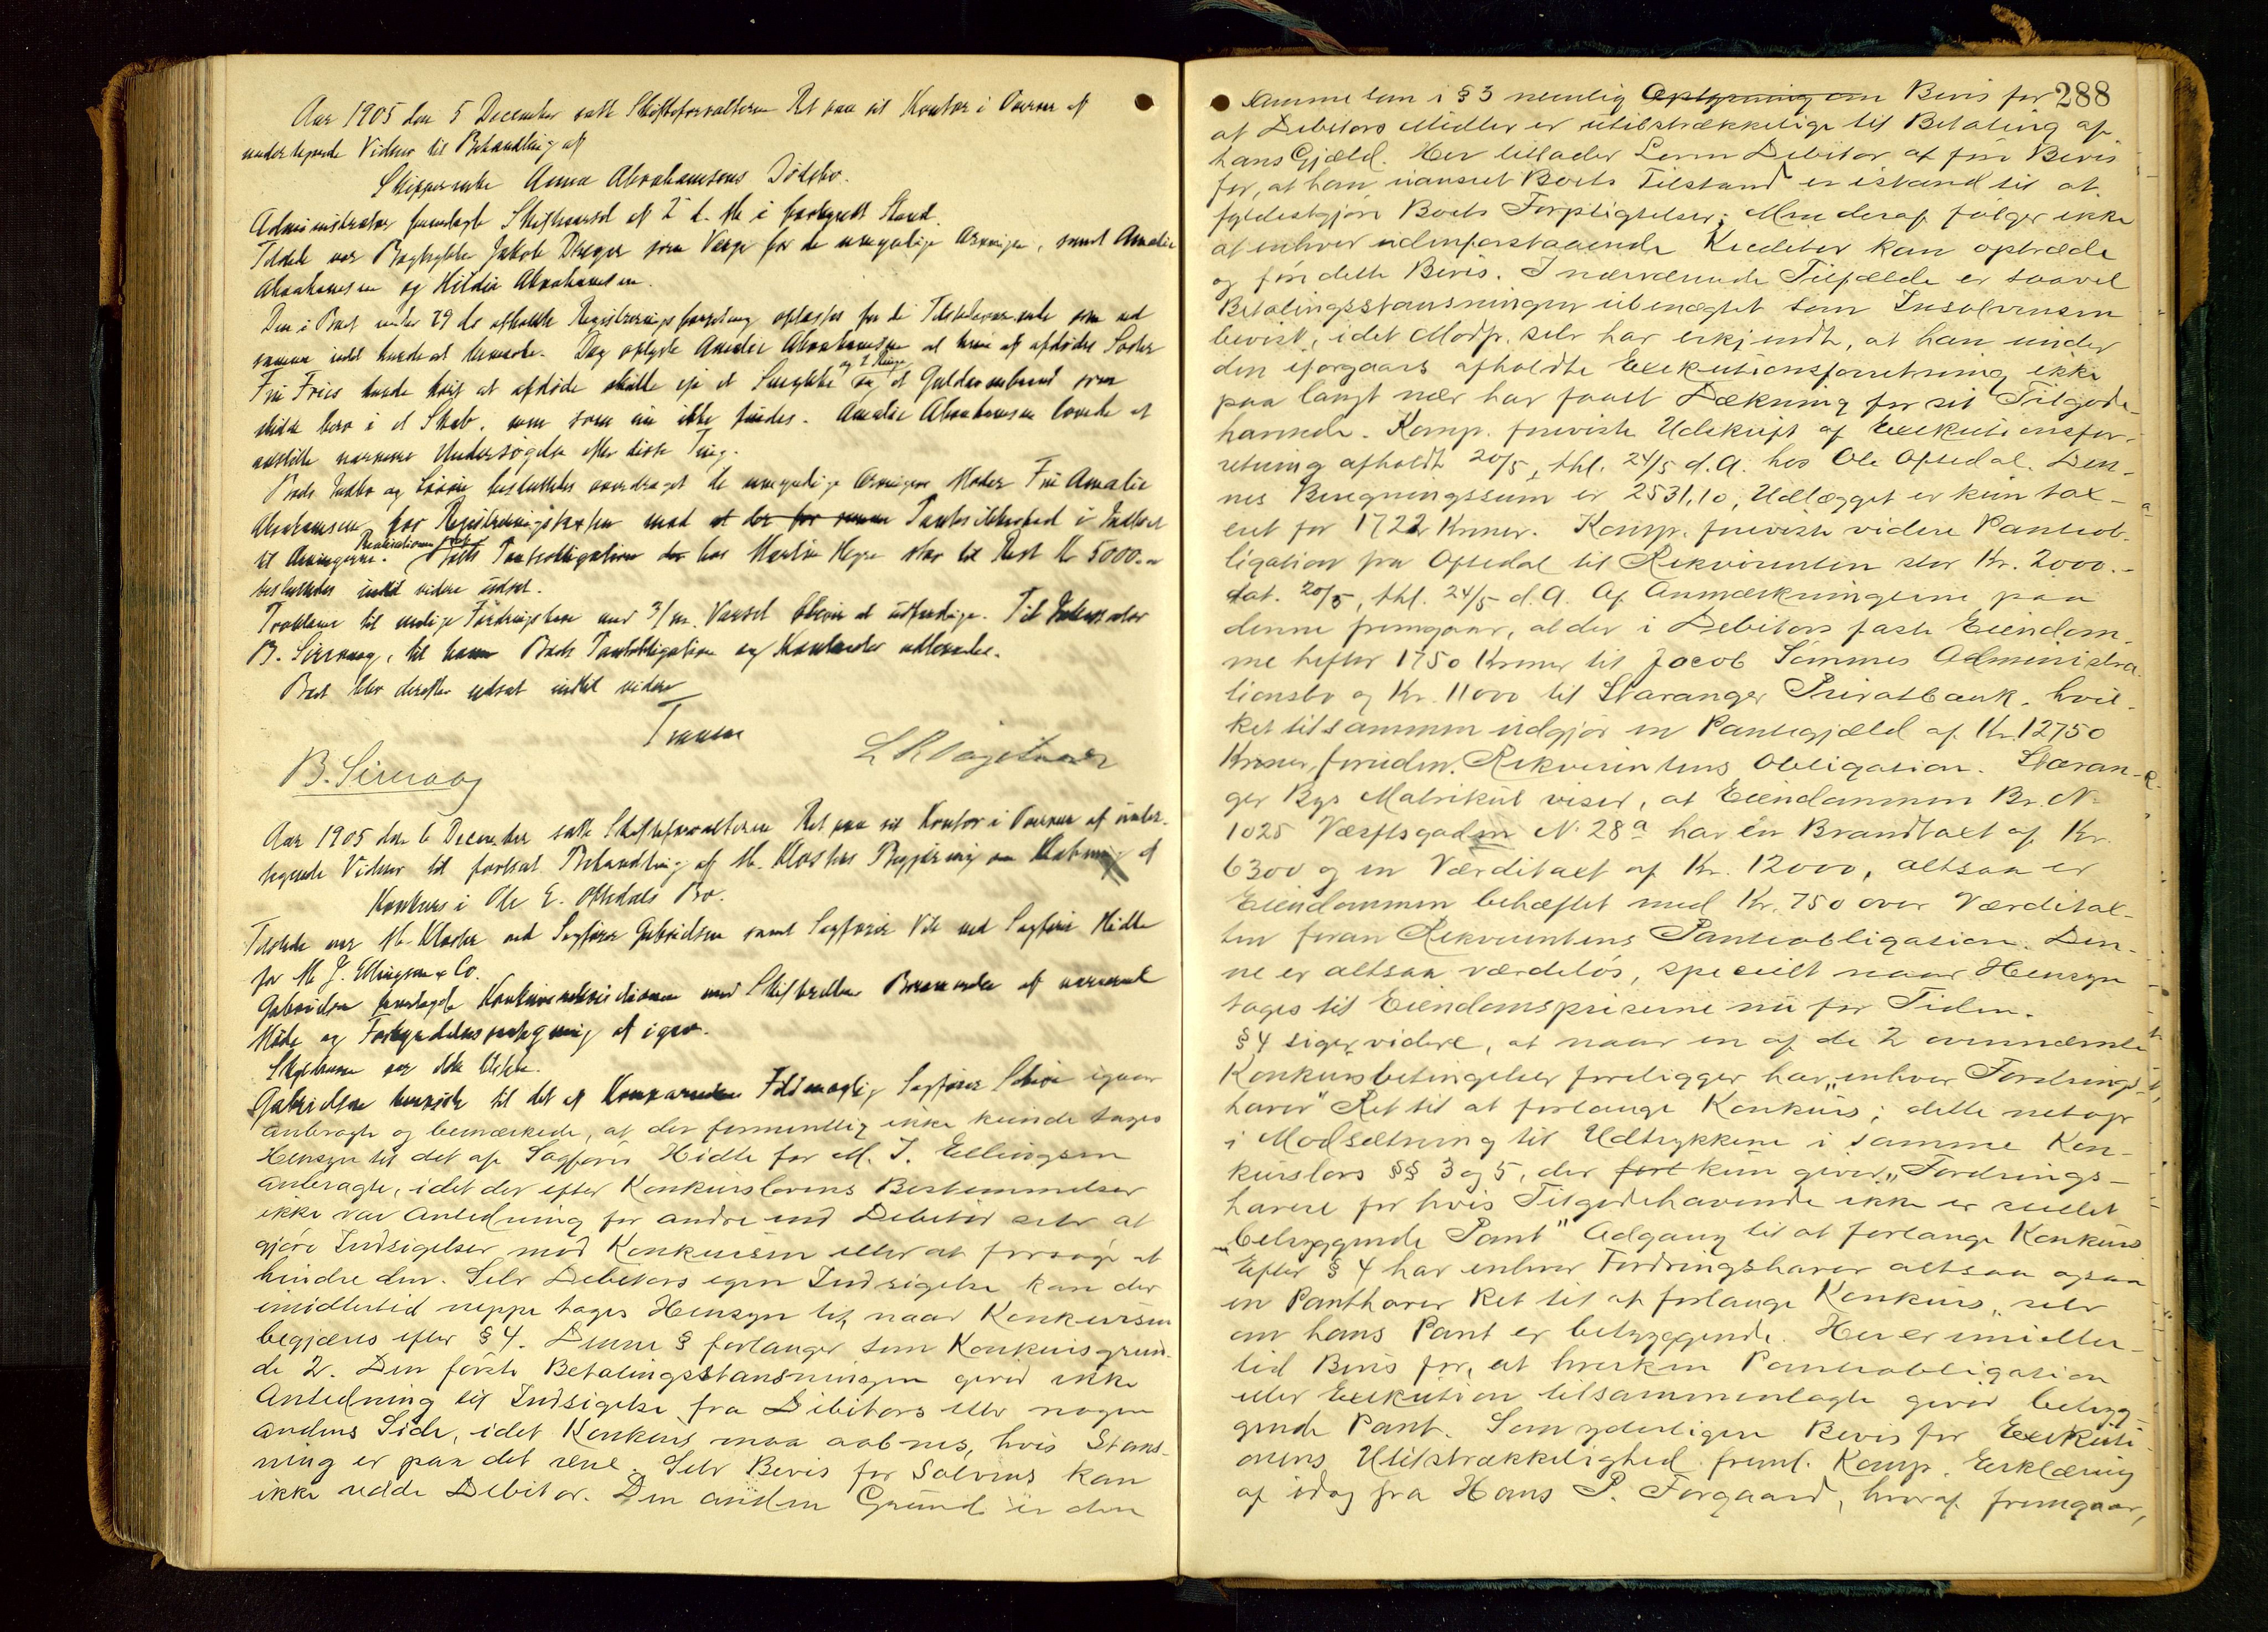 Aar 1905 den 5 December satte Skifteforvalteren Ret paa sit Kontor i Overvær af
undertegnede Vidner til Behandling af
Skipperenke Anna Abrahamsens Dødsbo.
Administrator fremlagde Skiftevarsel af 2 d. M. i forkyndt Stand.
Tilstede var Jakob Dreyer som Verge for de umyndige Arvinger, samt Amalie
Abrahamsen og Hilda Abrahamsen.
Den i Boet under 29 ds afholdte Registreringsforretning oplæstes for de Tilstedeværende som ved
samme intet havde at bemærke. Dog oplyste Amalie Abrahamsen at hun af afdødes Søster
Fru Friis havde hørt at afdøde skulde eje et og 2 Ringe og et Guldarmbaand som
skulde bero i et Skab, men som nu ikke findes. Amalie Abrahamsen lovede at
anstille nærmere Undersøgelse efter disse Ting.
Boets Indbo og Løsøre besluttedes overdraget de umyndige Arvingers Moder Fru Amalie
Abrahamsen for Registreringstaxten mod at der for samme Pantesikkerhed i Indboet
til Arvingerne. Realisationen af Boets Pantobligation hos Martin Hegre stor til Rest Kr 5000.-
besluttedes indtil videre udsat.
Proklama til mulige Fordringshavere med 3/m. Varsel bliver at udfærdige. Til Inkassator
B. Sirevaag, til ham Boets Pantobligation og Kontanter udleveredes.
Boet blev derefter udsat indtil videre
B. Sirevaag
Aar 1905 den 6 December satte Skifteforvalteren Ret paa sit Kontor i Overvær af under-
tegnede Vidner til fortsat Behandling af M. Klosters Begjæring om Aabning af
Konkurs i Ole E. Oftedals Bo.
Tilstede var M. Kloster ved Sagfører Gabrielsen samt Sagfører Vile ved Sagfører Hidle
for M. J. Ellingsen & Co.
Gabrielsen fremlagde Konkursrekvisitionen med Skifterettens Berammelse af nærværende
Møde og Forkyndelsespaategning af igaar.
Skyldneren var ikke tilstede.
Gabrielsen henviste til det af Komparentens Fuldmægtig Sagfører igaar
anbragte og bemærkede, at der formentlig ikke kunde tages
Hensyn til det af Sagfører Hidle for M. J. Ellingsen
anbragte, idet der efter Konkurslovens Bestemmelser
ikke var Anledning for andre end Debitor selv at
gjøre Indsigelser mod Konkursen eller at forsøge at
hindre den. Selv Debitors egen Indsigelse kan der
imidlertid neppe tages Hensyn til, naar Konkursen
begjæres efter § 4. Denne § forlanger som Konkursgrun-
de 2. Den første Betalingsstansningen giver ikke
Anledning til Indsigelse fra Debitors eller nogen
andens Side, idet Konkurs maa aabnes, hvis Stans-
ning er paa det rene. Selv Bevis for Solvens kan
ikke redde Debitor. Den anden Grund er den
288
samme som i § 3 nemlig Oplysning om Bevis for
at Debitors Midler er utilstrækkelige til Betaling af
hans Gjæld. Her tillader Loven Debitor at føre Bevis
for, at han uanseet Boets Tilstand er istand til at
fyldestgjøre Boets Forpligtelser; Men deraf følger ikke
at enhver udenforstaaende Kreditor kan optræde
og føre dette Bevis. I nærværende Tilfælde er saavel
Betalingsstansningen ubenægtet som Insolvensen
bevist, idet Modp. selv har erkjendt, at han under
den iforgaars afholdte Exekutionsforretning ikke
paa langt nær har faaet Dækning for sit Tilgode-
havende. Komp. foreviste Udskrift af Exekutionsfor-
retning afholdt 20/5, thl. 24/5 d. A. hos Ole Oftedal. Den-
nes Beregningssum er 2531,10, Udlægget er kun tax-
eret for 1722 Kroner. Komp. foreviste videre Panteob-
ligation fra Oftedal til Rekvirenten stor Kr. 2000.-
dat. 20/5, thl. 24/5 d. A. Af Anmærkningerne paa
denne fremgaar, at der i Debitors faste Eiendom-
me hefter 1750 Kroner til Jacob Sømmes Administra-
tionsbo og Kr. 11000 til Stavanger Privatbank, hvil-
ket tilsammen udgjør en Pantegjæld af Kr. 12750
Kroner foruden Rekvirentens Obligation. Stavan-
ger Bys Matrikul viser, at Eiendommen Br. N.
1025 Værftsgaden N. 28a har en Brandtaxt af Kr.
6300 og en Værditaxt af Kr. 12000, altsaa er
Eiendommen beheftet med Kr. 750 over Værditax-
ten foran Rekvirentens Panteobligation. Den-
ne er altsaa værdeløs, specielt naar Hensyn
tages til Eiendomspriserne nu for Tiden.
§ 4 siger videre, at naar en af de 2 ovennævnte
Konkursbetingelser foreligger har „enhver Fordrings-
haver" Ret til at forlange Konkurs; dette netop
i Modsætning til Udtrykkene i samme Kon-
kurslovs §§ 3 og 5, der fort kun giver „Fordrings-
havere for hvis Tilgodehavende ikke er stillet
betryggende Pant" Adgang til at forlange Konkurs
Efter § 4 har enhver Fordringshaver altsaa ogsaa
en Panthaver Ret til at forlange Konkurs, selv
om hans Pant er betryggende. Her er imidler-
tid Bevis for, at hverken Panteobligation
eller Exekution tilsammenlagte giver betryg-
gende Pant. Som yderligere Bevis for Exekuti-
onens Utilstrækkelighed freml. Komp. Erklæring
af idag fra Hans P. Forgaard, hvoraf fremgaar,